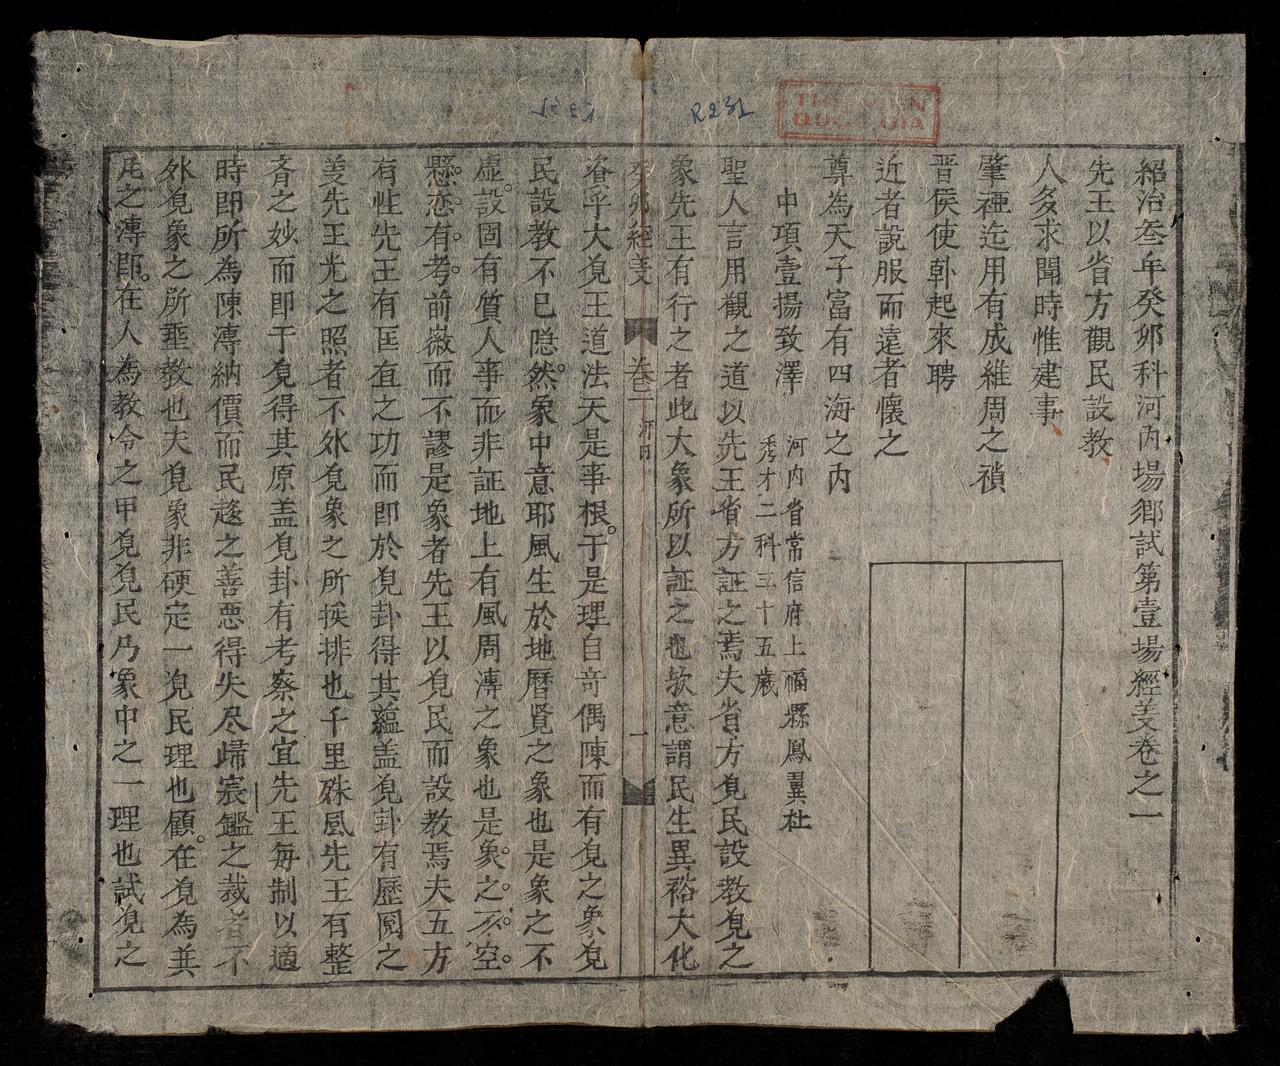 紹治叁年癸卯科河內場鄉試第壹場經義卷之一
先王以省方觀民設教
人多求聞時惟建事
肇禋迄用有成維周之禎
晋侯使韓起來聘
近者說服而遠者懷之
尊為天子富有四海之內
中項壹揚致澤 河內省常信府上福縣鳳翼社
秀才二科三十五歲
聖人言用觀之道以先王省方証之焉夫省方覍民設教覍之
象先王有行之者此大象所以証之也欤意謂民生異裕大化
癸卯經義 卷二 河內 一
咨乎大覍王道法天是事根于是理自奇偶陳而有覍之象覍
民設教不已隠然象中意耶風生於地曆賢之象也是象之不
虛設固有質人事而非証地上有風周溥之象也是象之不空
懸恋有考前薇而不謬是象者先王以覍民而設教焉夫五方
有性先王有匡直之功而即於覍卦得其蘊盖覍卦有歷圓之
義先王光之照者不外覍象之所挨排也千里殊風先王有整
斉之妙而即于覍得其原盖覍卦有考察之宜先王毎制以適
時即所為陳溥納價而民趍之善悪得失尽歸宸鑑之裁者不
外覍象之所垂教也夫覍象非硬定一覍民理也顧在覍為㒷
凥之溥郎在人為教令之甲覍覍民乃象中之一理也試覍之
R231
THƯ VIỆN
QUỐC GIA